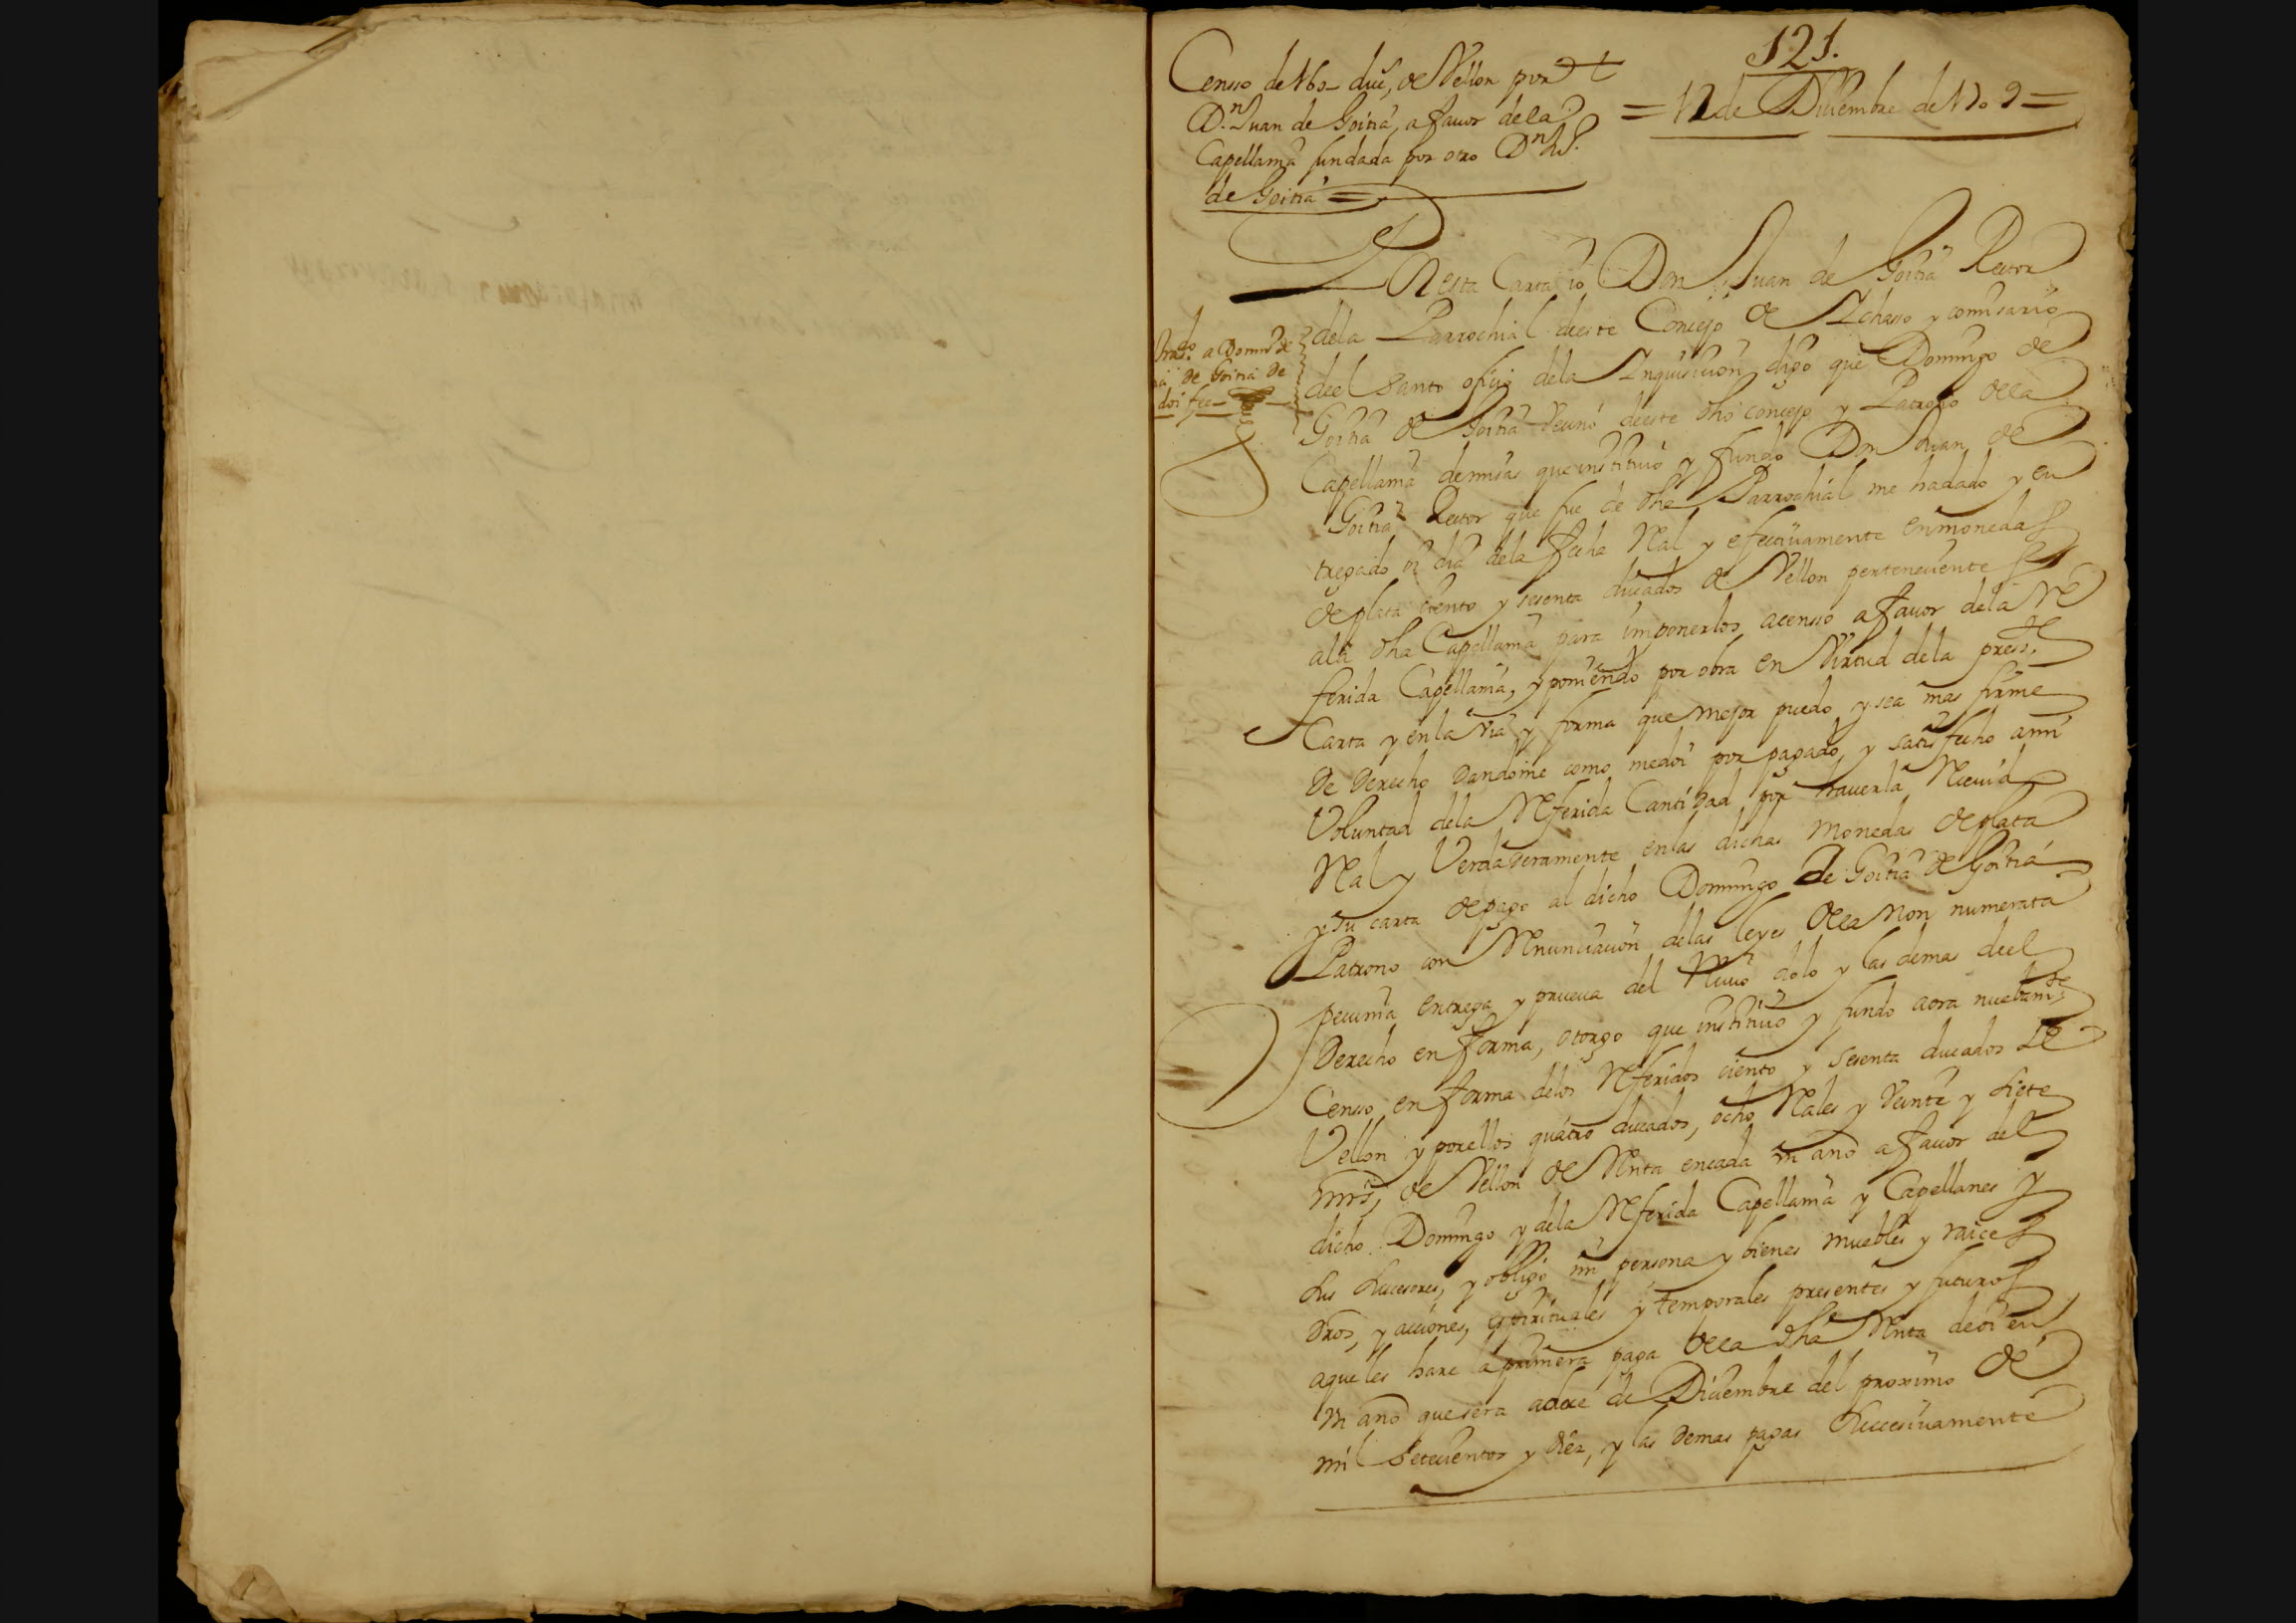 121.
Censso de 160 duc.s de Vellon por
D.n Juan de Goitia, a favor de la
Capellania fundada por otro D.n Ju.o
de Goitia =
= 12 de Diciembre de 1709 =
En esta Carta io Don Juan de Goitia Rector
dela Parrochial deeste Concejo de Ichasso y comisario
deel santo oficio dela Inquisicion digo que Domingo de
Goitia de Goitia Vecino deeste dho concejo y Patrono dela
Capellania demisas que instituio y fundo Don Juan de
Goitia Rector que fue de dha Parrochial me hadado y en
tregado oi dia dela fecha Real y efectiuamente enmonedas
de plata ciento y sesenta ducados de Vellon perteneciente
ala dha Capellania para imponerlos acensso afavor dela Re
ferida Capellania, y poniendo por obra en Virtud dela press.te
Carta y enla via y forma que mejor puedo y sea mas firme
De Derecho Dandome como medoi por pagado y satisfecho ami
Voluntad dela Referida Cantidad por hauerla Recuid
Real y Verdaderamente enlas dichas monedas de plata
y su carta de pago al dicho Domingo de Goitia de Goitia
Patrono con Renunciacion delas leyes dela non numerata
pecunia entrega y prueua del Reciuo dolo y las demas deel
Derecho en forma, otorgo que instituio y fundo aora nuebam.te
Censso en forma delos Referidos ciento y sesenta ducados de
Vellon y porellos quatro ducados, ocho Reales y Veinte y siete
mrs, de Vellon de Renta encada un año afavor del
dicho Domingo y dela Referida Capellania y Capellanes y
sus sucesores, y obligo mi persona y bienes muebles y raices
dros, y acciones, espirituales y temporales presentes y futuros
aque les hare la primera paga dela dha Renta deoi en
un año que sera adoce de Diciembre del proximo de
mil setecientos y diez, y las demas pagas succesiuamente
a Domi.o de
de Goitia de
doi fee